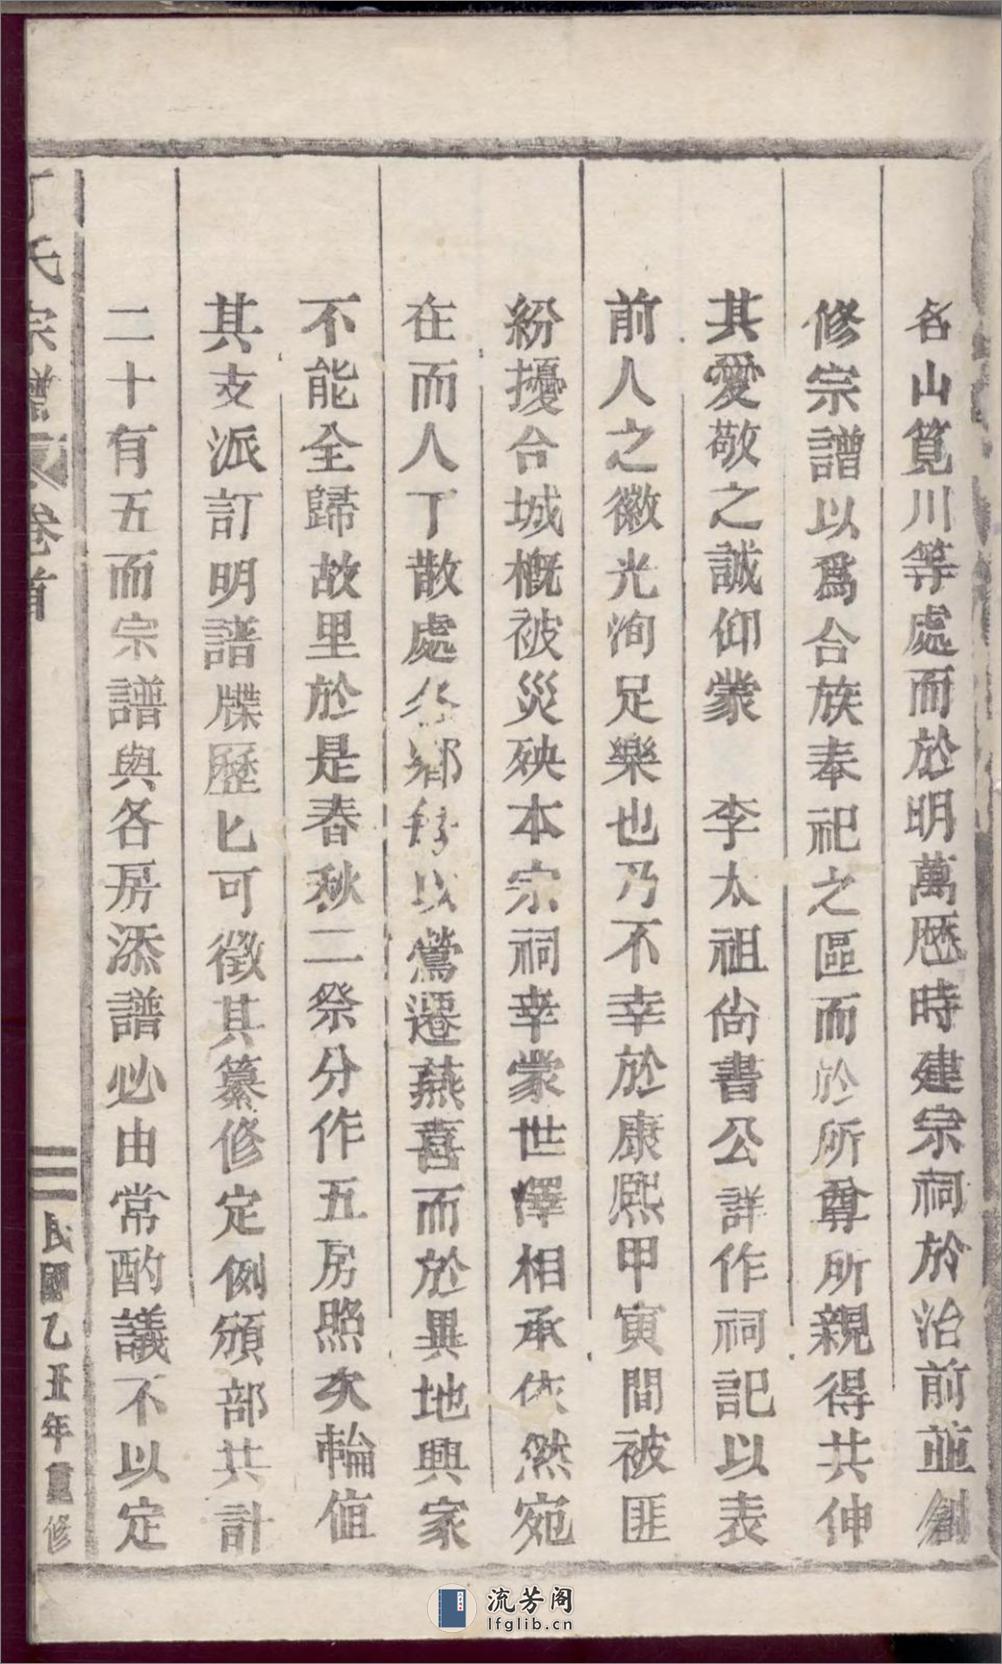 名山筧川等處而於明萬歷時建宗祠於治前並創
修宗譜以爲合族奉祀之區而於所尊所親得共伸
其愛敬之誠仰蒙　李太祖尙書公詳作祠記以表
前人之徽光洵足樂也乃不幸於康熙甲寅間被匪
紛擾合城槪被災殃本宗祠幸蒙世澤相承依然宛
在而人丁散處各鄉移以鶯遷燕喜而於異地興家
不能全歸故里於是春秋二祭分作五房照次輪値
其支派訂明譜牒歷匕可徵其纂修定例頒部共計
二十有五而宗譜與各房添譜必由常酌議不以定
氏宗譜　卷首　二　民國乙丑年重修
流芳阁
lfglib.cn